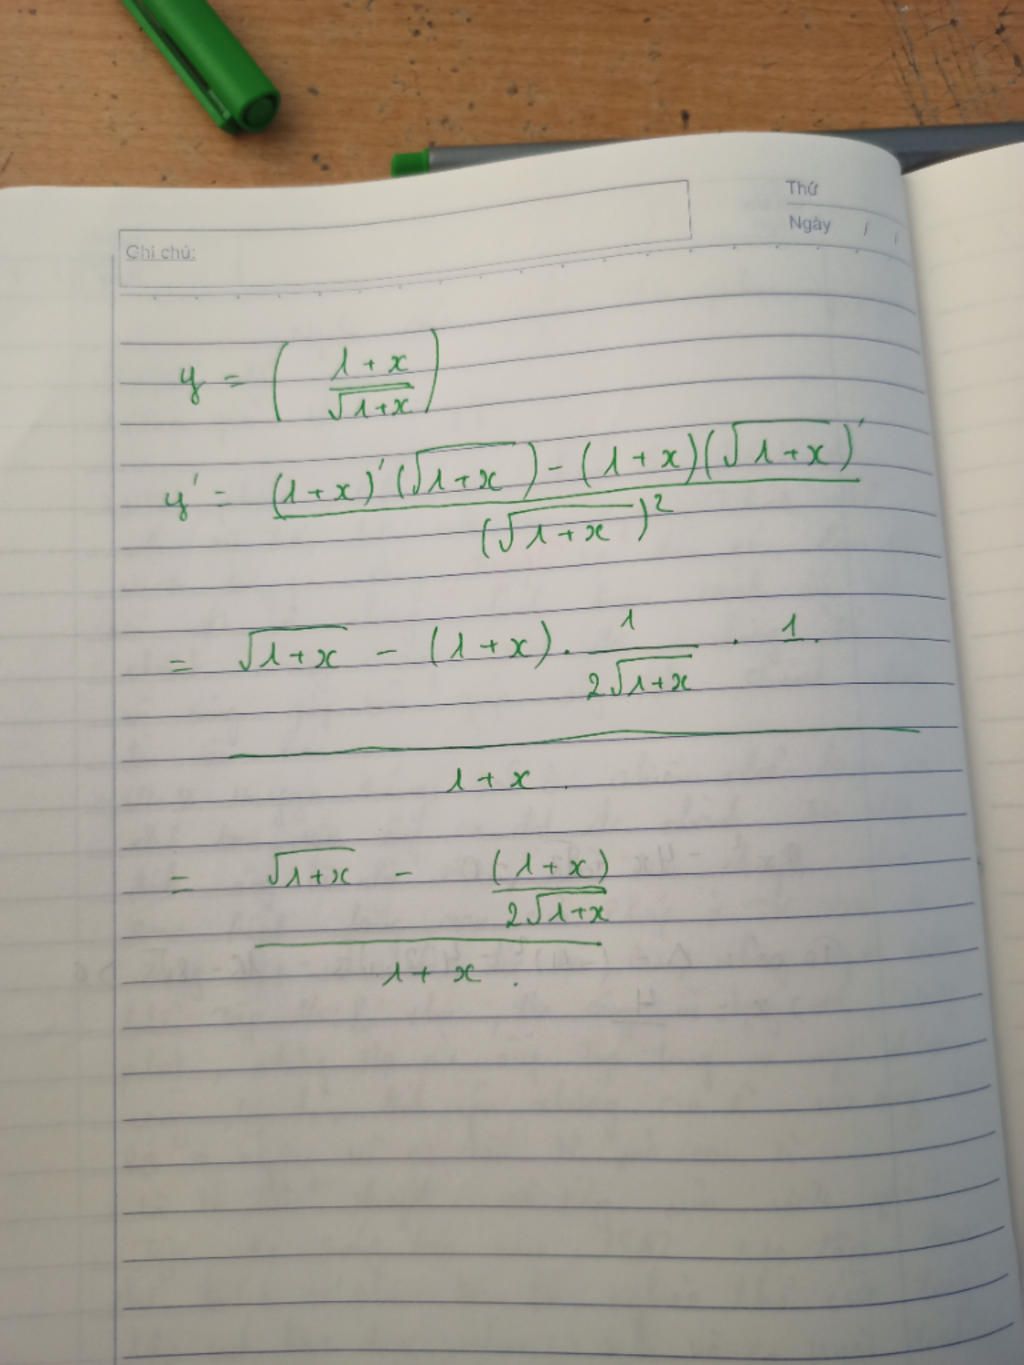 Thứ
Ngày / /
Ghi chú:
y = ( (1+x) / √(1+x) )
y' = ( (1+x)'(√(1+x)) - (1+x)(√(1+x))' ) / (√(1+x))²
= ( √(1+x) - (1+x) . 1/(2√(1+x)) . 1 ) / (1+x)
= ( √(1+x) - (1+x)/(2√(1+x)) ) / (1+x) .